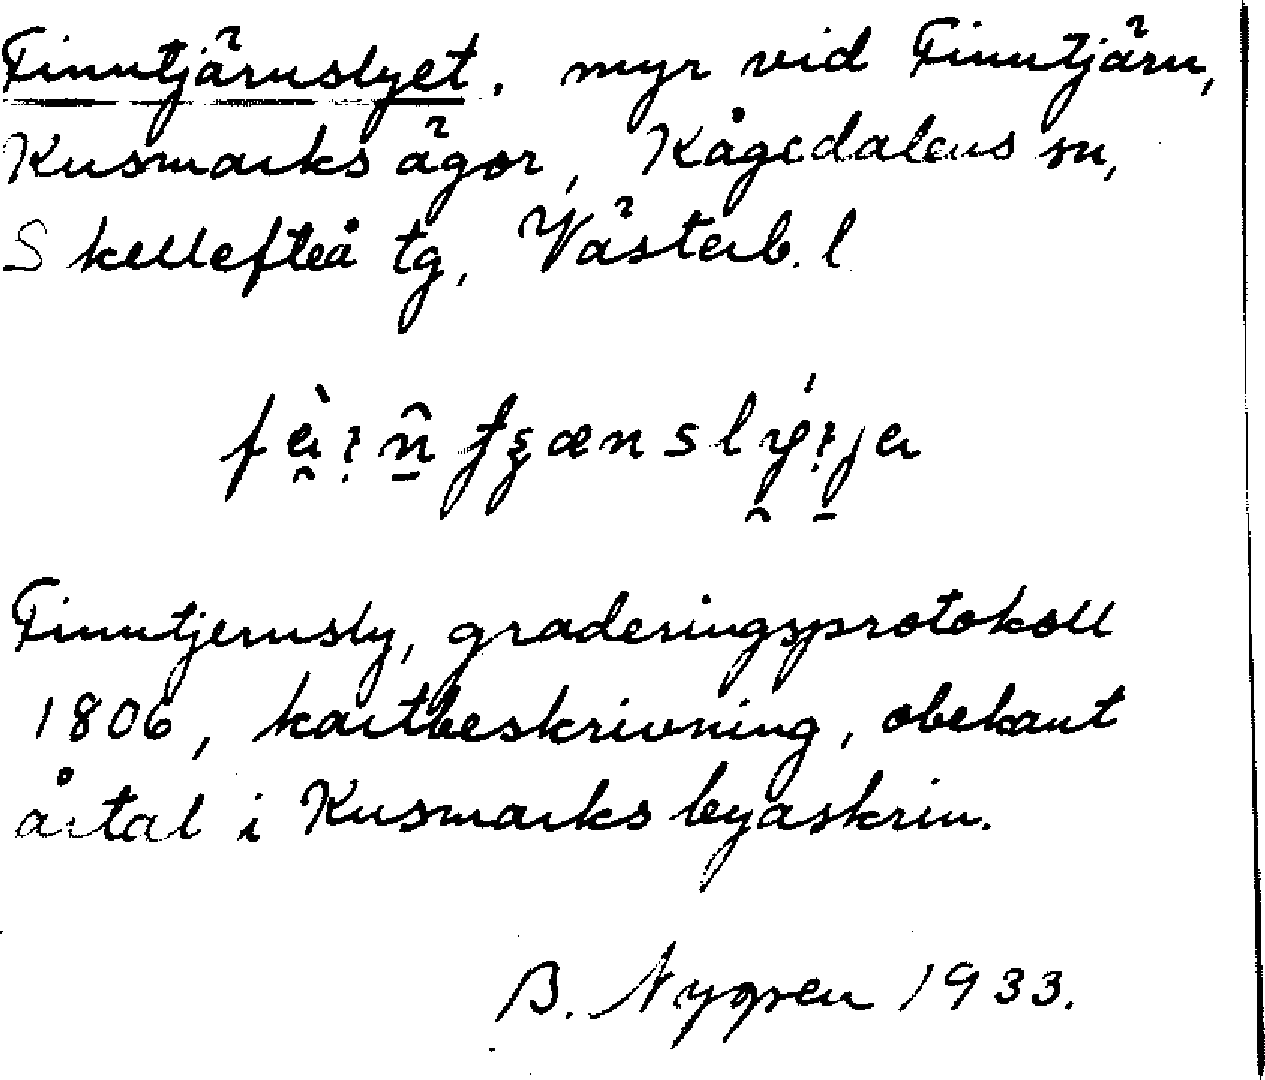 Finntjärnslyet, myr vid Finntjärn,
Kusmarks ägor, Kågedalens sn,
Skellefteå tg, Västerb. l.
Finntjernsly, graderingsprotokoll
1806, kartbeskrivning, obekant
årtal i Kusmarks byaskrin.
B. Nygren 1933.